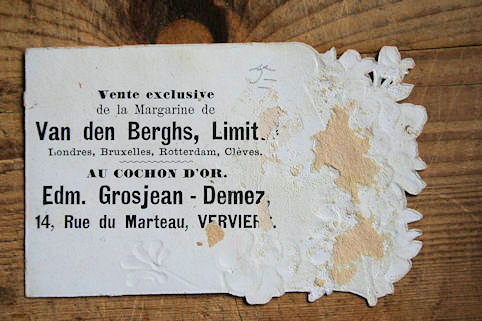 5-
Vente exclusive
de la Margarine de
Van den Berghs, Limit.
Londres, Bruxelles, Rotterdam, Clèves.
AU COCHON D'OR.
Edm. Grosjean - Demez,
14, Rue du Marteau, VERVIERS.